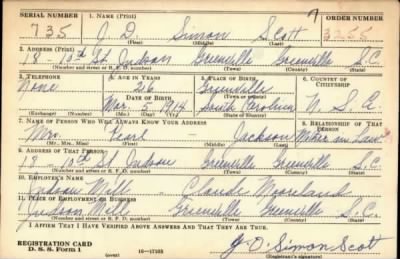 SERIAL NUMBER 1. NAME (Print) 7 ORDER NUMBER
735 J. D. Simon Scott 3255
(First) (Middle) (Last)
2. ADDRESS (Print)
18 - 10th St. Judson Greenville Greenville S.C.
(Number and street or R. F. D. number) (Town) (County) (State)
3. TELEPHONE 4. AGE IN YEARS 5. PLACE OF BIRTH 6. COUNTRY OF CITIZENSHIP
None 26 Greenville
DATE OF BIRTH (Town or county)
Mar. 5, 1914 South Carolina U. S. A.
(Exchange) (Number) (Mo.) (Day) (Yr.) (State or country)
7. NAME OF PERSON WHO WILL ALWAYS KNOW YOUR ADDRESS 8. RELATIONSHIP OF THAT PERSON
Mrs. Pearl Jackson Mother in Law
(Mr., Mrs., Miss) (First) (Middle) (Last)
9. ADDRESS OF THAT PERSON
18 - 10th St Judson Greenville Greenville S.C.
(Number and street or R. F. D. number) (Town) (County) (State)
10. EMPLOYER'S NAME
Judson Mill - Claude
11. PLACE OF EMPLOYMENT OR BUSINESS
Judson Mill Greenville Greenville S.C.
(Number and street or R. F. D. number) (Town) (County) (State)
I AFFIRM THAT I HAVE VERIFIED ABOVE ANSWERS AND THAT THEY ARE TRUE.
REGISTRATION CARD
D. S. S. Form 1 (over) 16—17105 J. D. Simon Scott